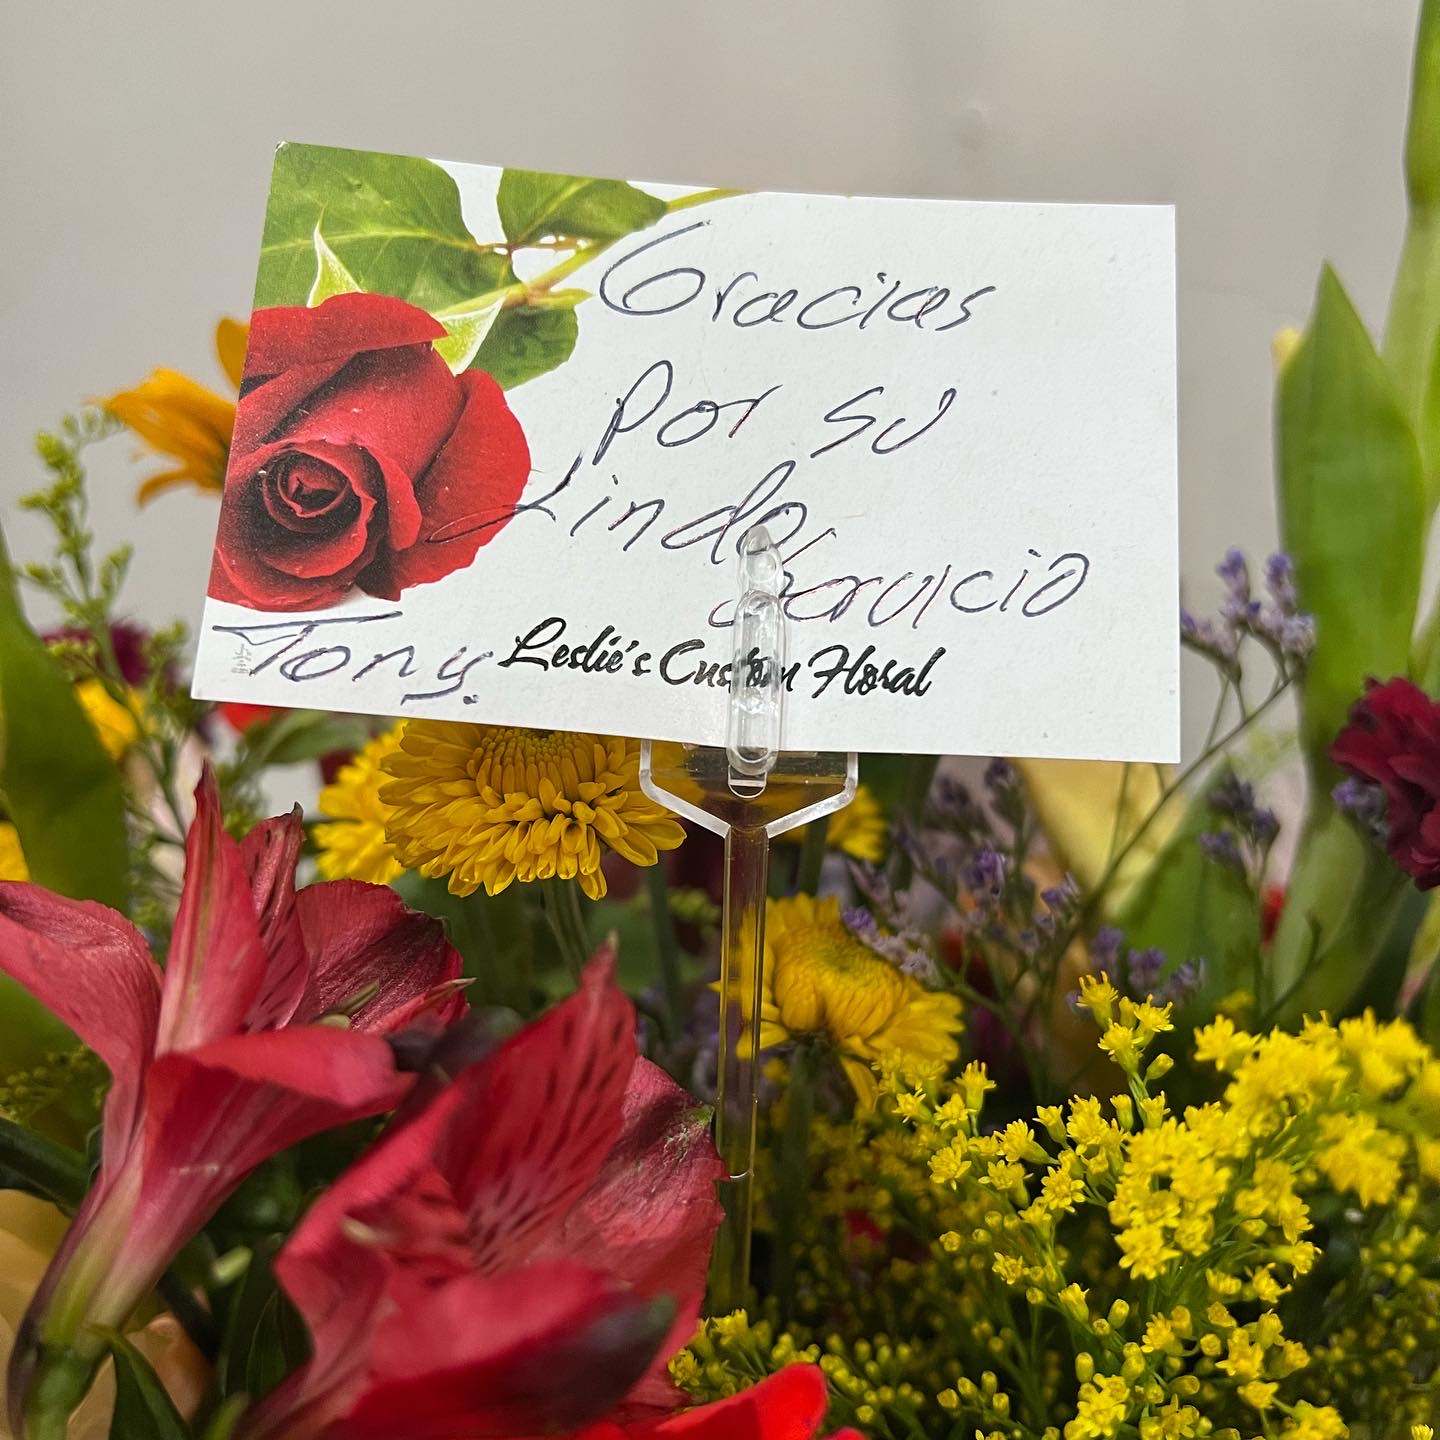 Gracias
Por su
Lindo
Servicio
Tony.
Leslie's Custom Floral